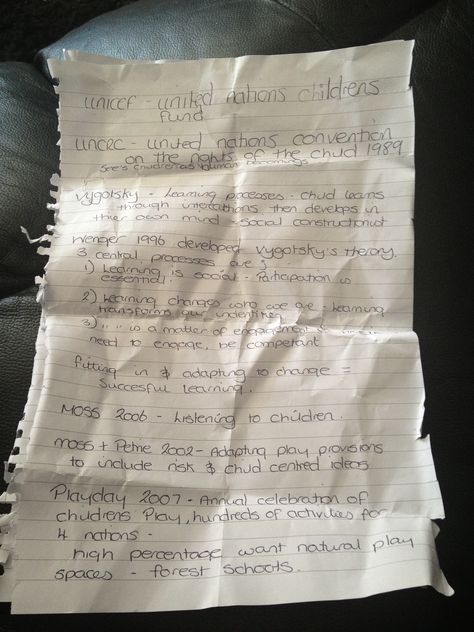 unicef - united nations childrens
fund
UNCRC - united nations convention
on the rights of the child 1989
See's children as human becomings
Vygotsky - Learning processes - child learns
through interactions, then develops in
thier own mind - social constructionist
Wenger 1996 developed Vygotsky's theory.
3 central processes are ;
1) Learning is social - Participation is
essential.
2) Learning changes who we are - learning
transforms our identities
3) " " is a matter of engagement
need to engage, be competant
fitting in & adapting to change =
Succesful learning.
MOSS 2006 - Listening to children.
moss + Petrie 2002 - Adapting play provisions
to include risk & child centred ideas
Playday 2007 - Annual celebration of
childrens Play, hundreds of activities for
4 nations -
high percentage want natural play
spaces - forest schools.